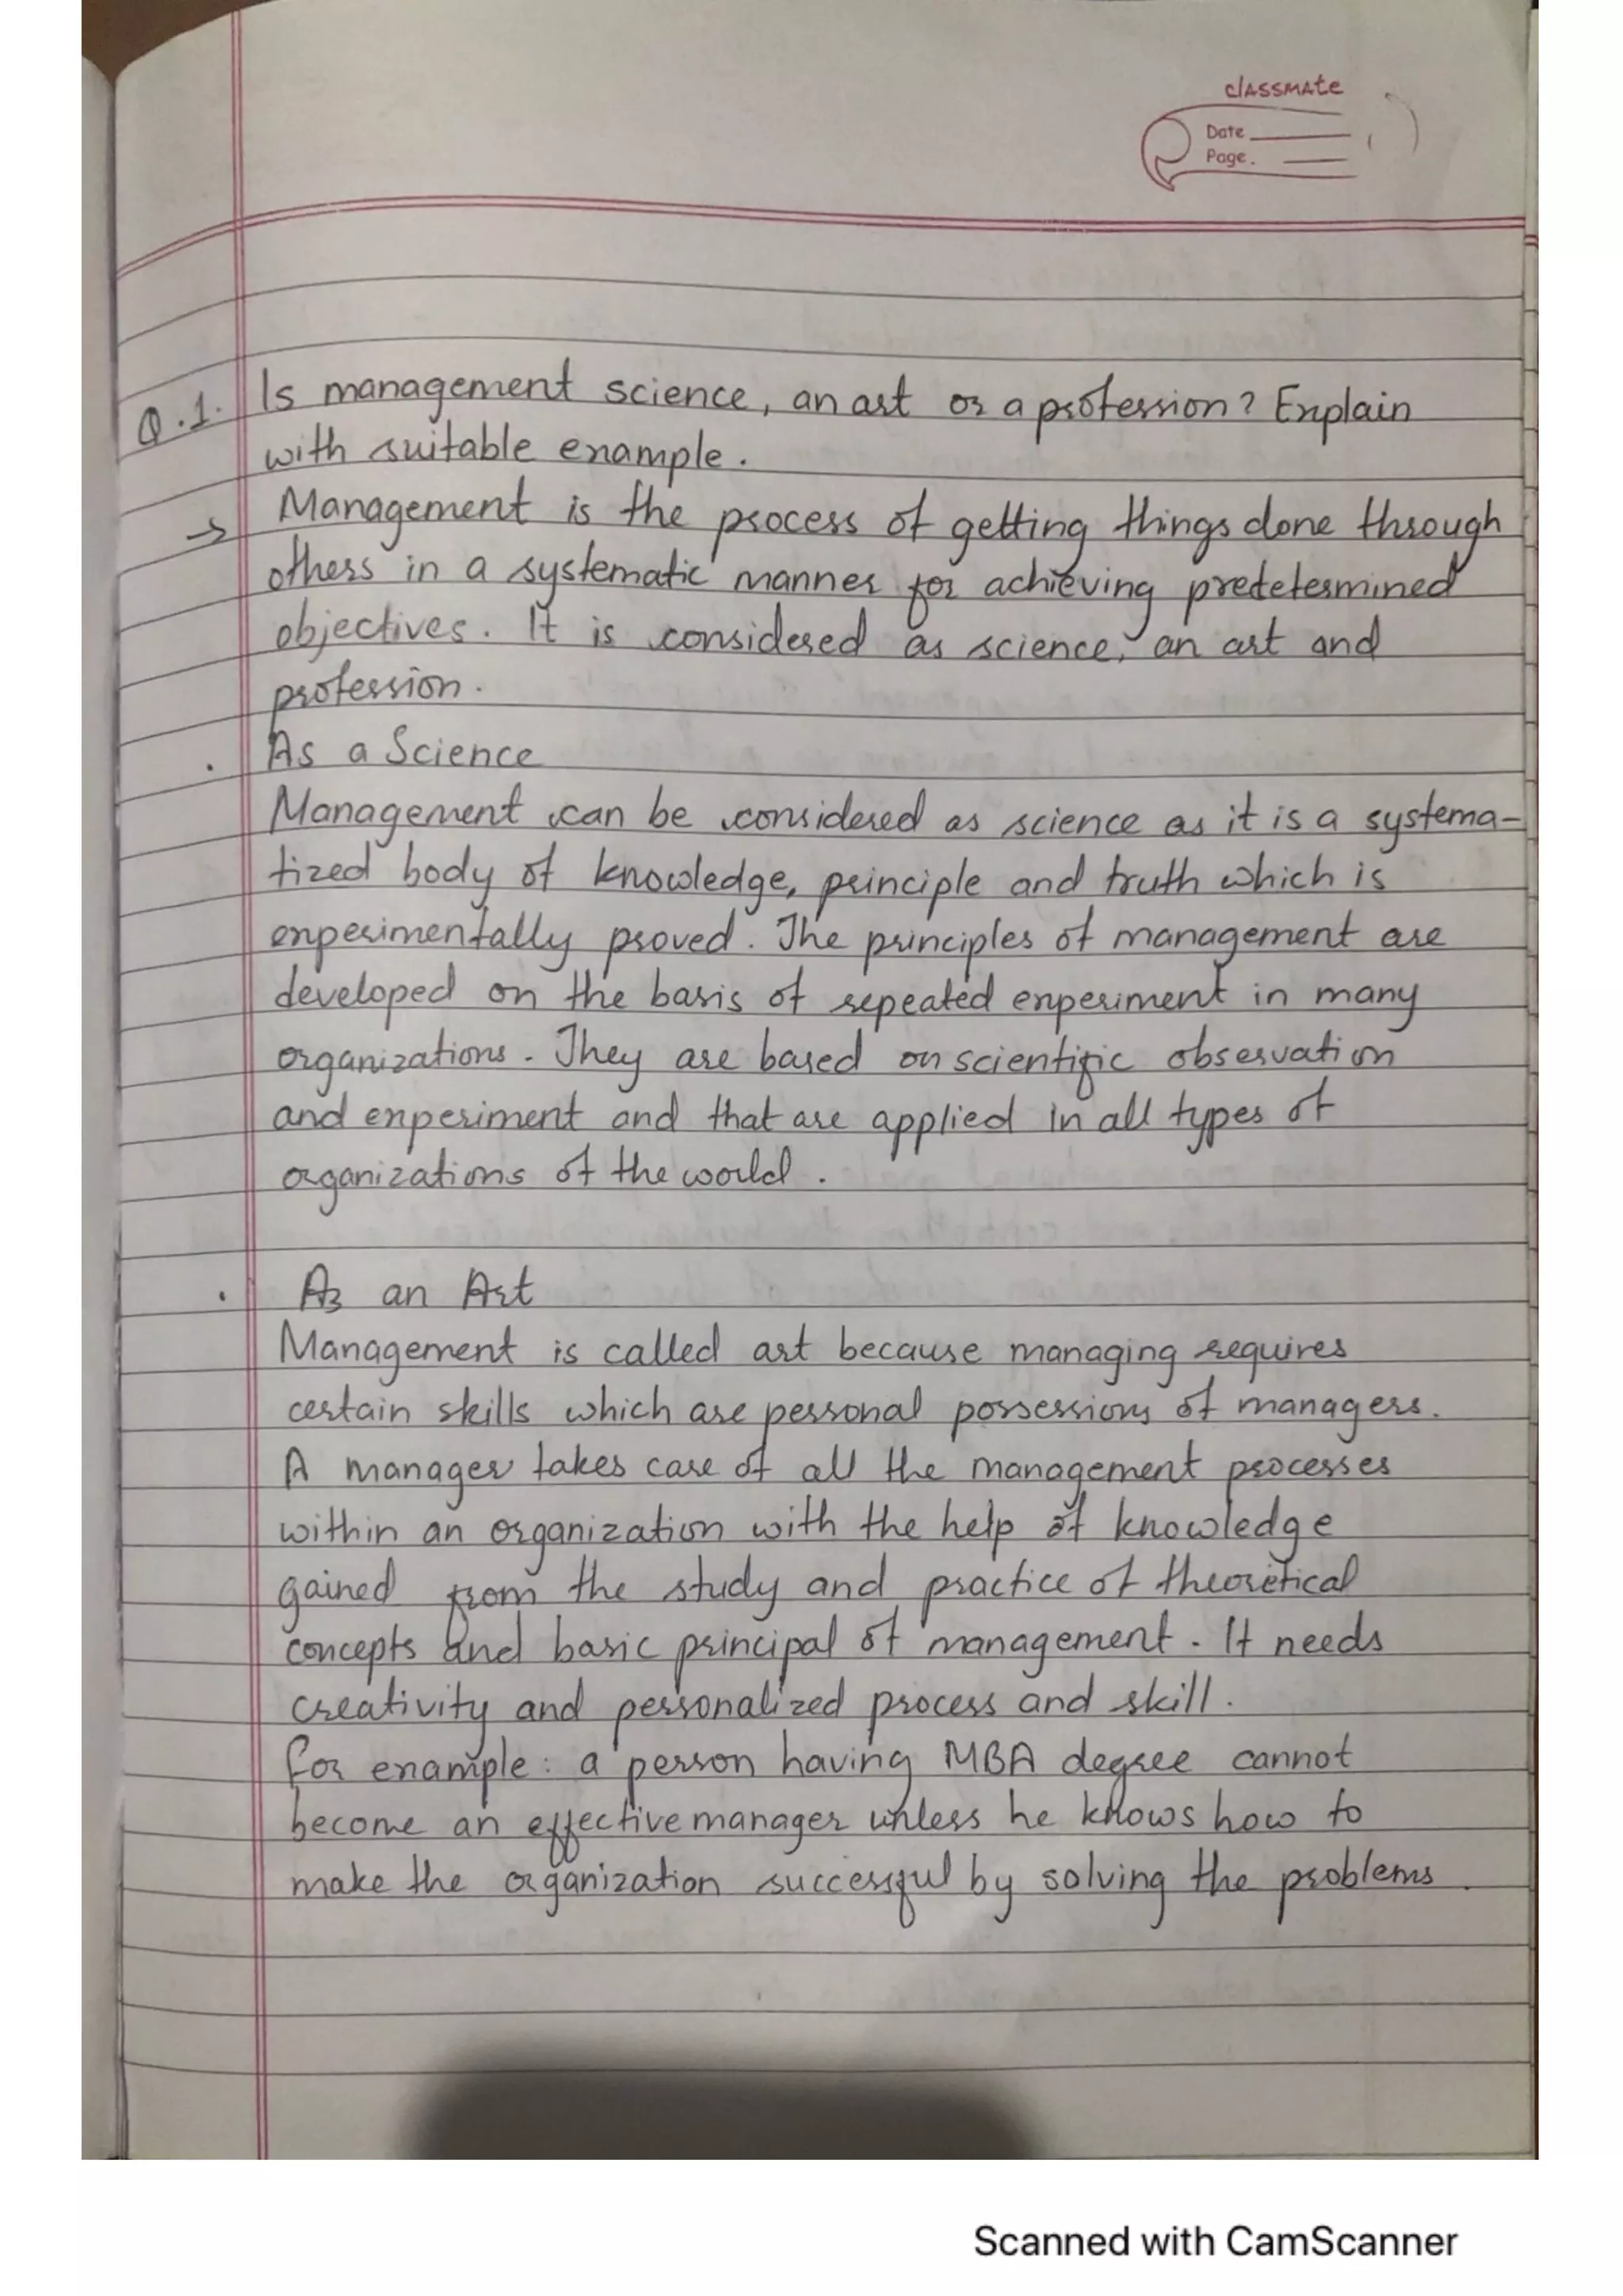 classmate
Date
Page.
Q.1. Is management science, an art or a profession? Explain
with suitable example.
→ Management is the process of getting things done through
others in a systematic manner for achieving predetermined
objectives. It is considered as science, an art and
profession.
. As a Science
Management can be considered as science as it is a systema-
tized body of knowledge, principle and truth which is
experimentally proved. The principles of management are
developed on the basis of repeated experiment in many
organizations. They are based on scientific observation
and experiment and that are applied in all types of
organizations of the world.
. As an Art
Management is called art because managing requires
certain skills which are personal possessions of managers.
A manager takes care of all the management processes
within an organization with the help of knowledge
gained from the study and practice of theoretical
concepts and basic principal of management. It needs
creativity and personalized process and skill.
for example: a person having MBA degree cannot
become an effective manager unless he knows how to
make the organization successful by solving the problems.
Scanned with CamScanner